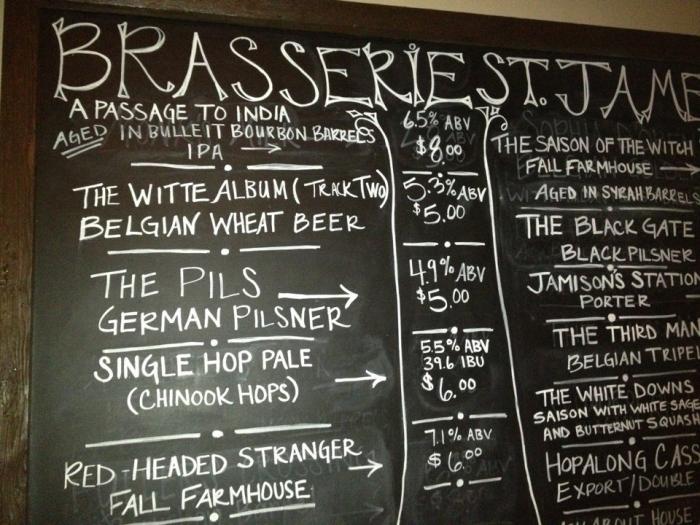 BRASSERIE ST. JAME
A PASSAGE TO INDIA
AGED IN BULLEIT BOURBON BARRELS
IPA
6.5% ABV
$8.00
THE WITTE ALBUM (TRACK TWO)
BELGIAN WHEAT BEER
5.3% ABV
$5.00
THE PILS
GERMAN PILSNER
4.9% ABV
$5.00
SINGLE HOP PALE
(CHINOOK HOPS)
5.5% ABV
39.6 IBU
$6.00
RED-HEADED STRANGER
FALL FARMHOUSE
7.1% ABV
$6.00
THE SAISON OF THE WITCH
FALL FARMHOUSE
AGED IN SYRAH BARRELS
THE BLACK GATE
BLACK PILSNER
JAMISON'S STATION
PORTER
THE THIRD MAN
BELGIAN TRIPEL
THE WHITE DOWNS
SAISON WITH WHITE SAGE
AND BUTTERNUT SQUASH
HOPALONG CASS
EXPORT/DOUBLE
ABOUT HOUSE